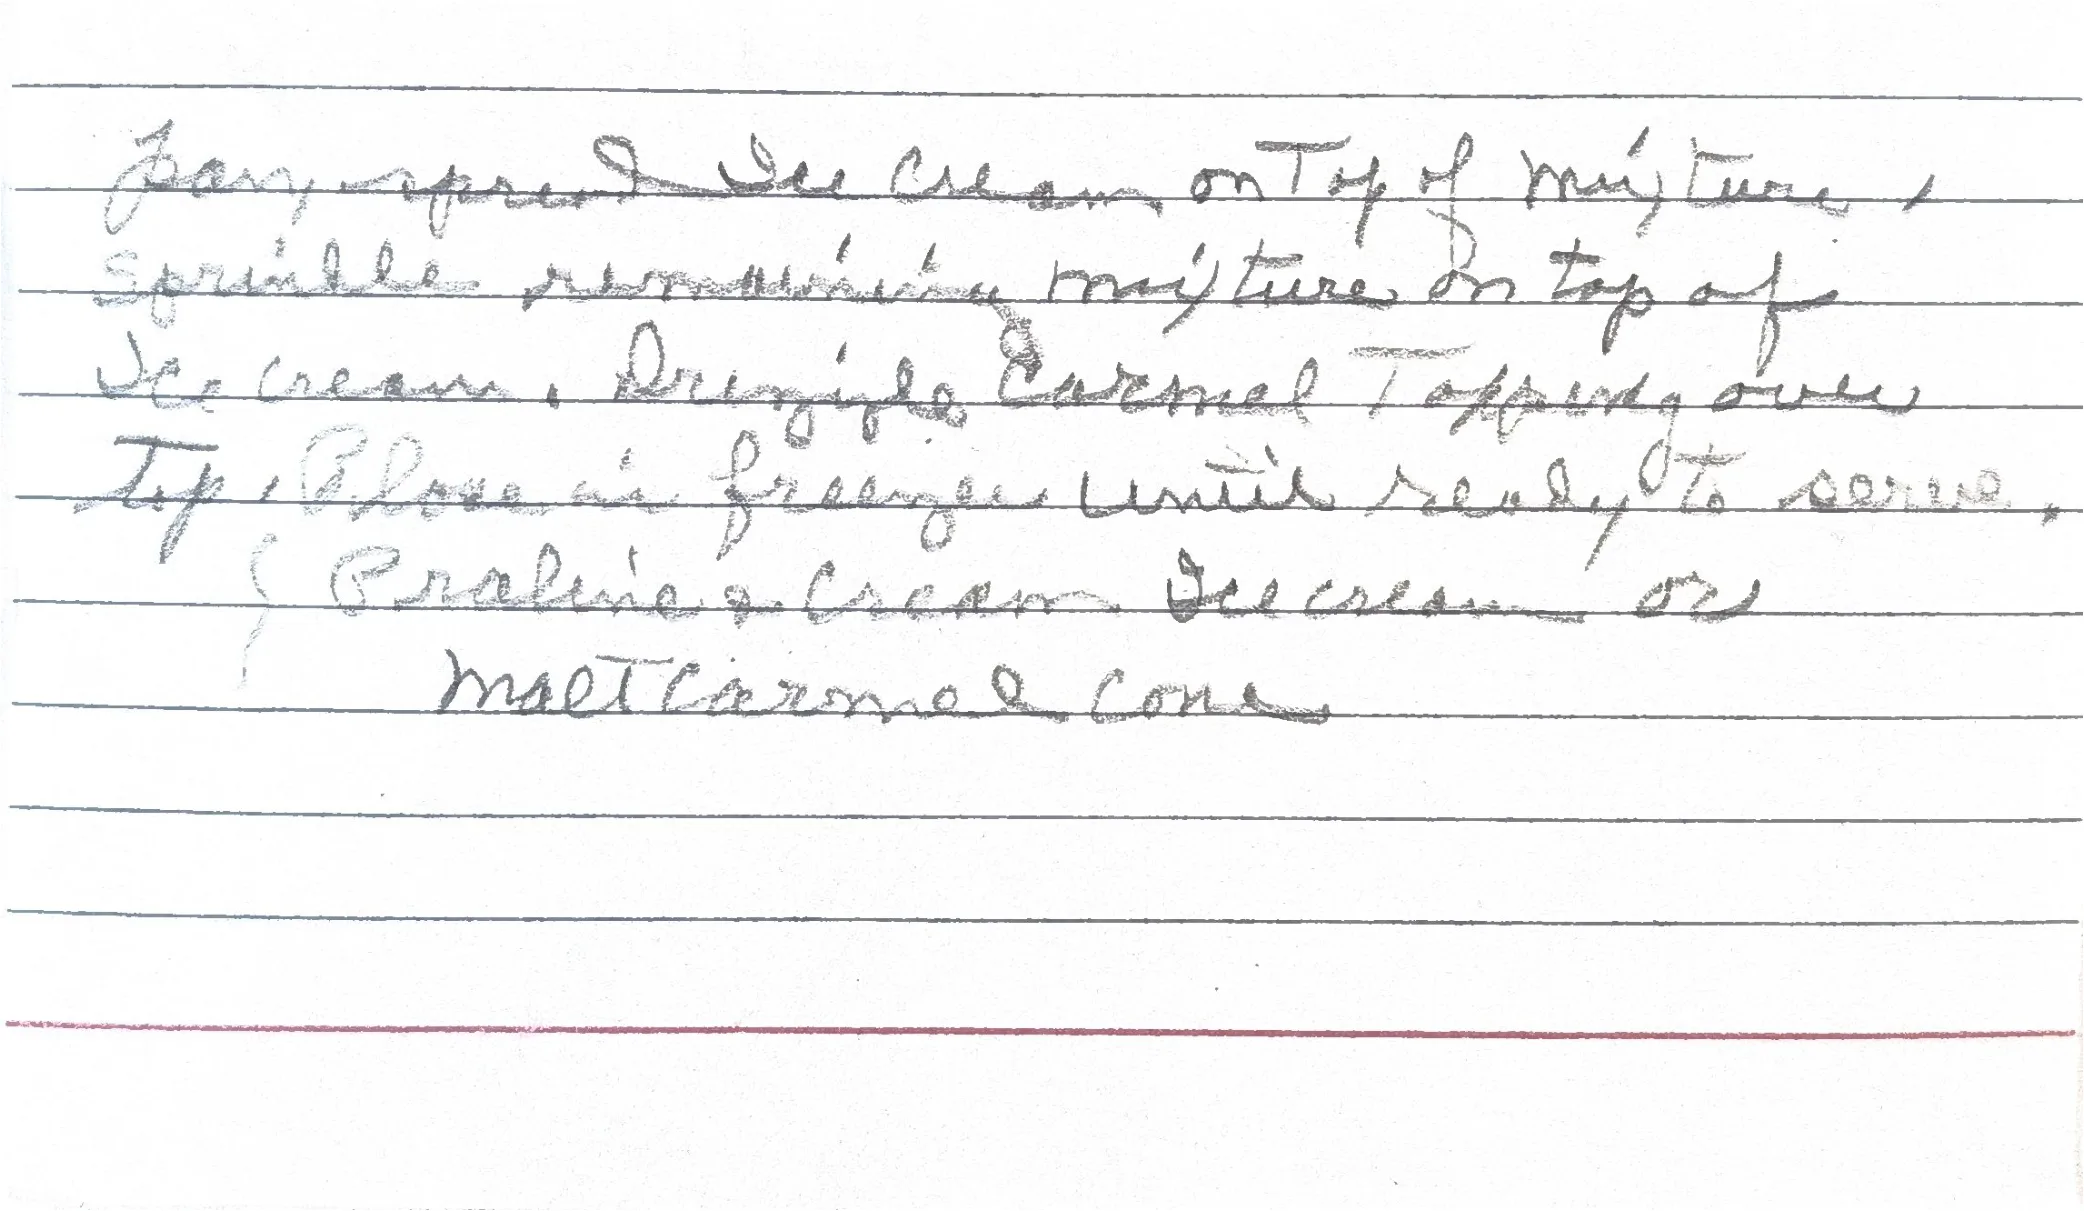 pan, spread Ice Cream on Top of mixture,
Sprinkle remaining mixture on top of
Ice cream. Drizzle Carmel Topping over
Top. Place in freezer until ready to serve.
Praline & Cream Ice cream or
Malt Carmel Cone